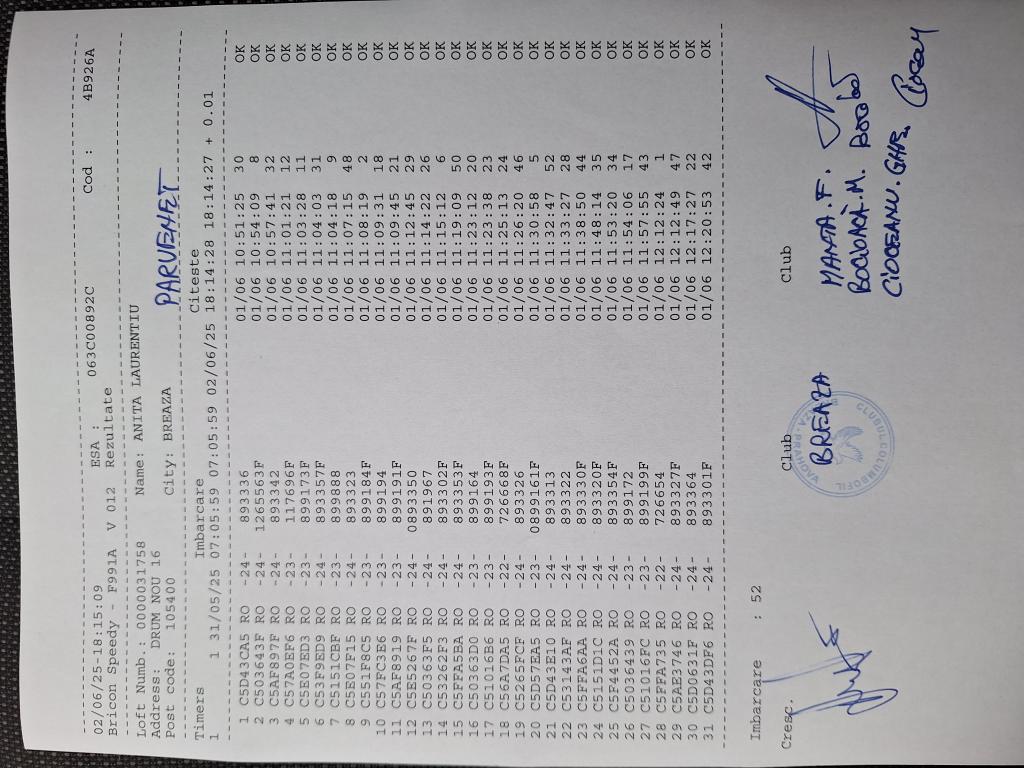 02/06/25-18:15:09 ESA : 063C00892C Cod : 4B926A
Bricon Speedy - F991A V 012 Rezultate
Loft Numb.: 0000031758 Name: ANITA LAURENTIU
Address: DRUM NOU 16
Post code: 105400 City: BREAZA PARVENET
Timers Imbarcare Citeste
1 1 31/05/25 07:05:59 07:05:59 02/06/25 18:14:28 18:14:27 + 0.01
1 C5D43CA5 RO -24- 893336 01/06 10:51:25 30 OK
2 C503643F RO -24- 1265563F 01/06 10:54:09 8 OK
3 C5AF897F RO -24- 893342 01/06 10:57:41 32 OK
4 C57A0EF6 RO -23- 117696F 01/06 11:01:21 12 OK
5 C5E07ED3 RO -23- 899173F 01/06 11:03:28 11 OK
6 C53F9ED9 RO -24- 893357F 01/06 11:04:03 31 OK
7 C5151CBF RO -23- 899888 01/06 11:04:18 9 OK
8 C5E07F15 RO -24- 893323 01/06 11:07:15 48 OK
9 C551F8C5 RO -23- 899184F 01/06 11:08:19 2 OK
10 C57FC3E6 RO -23- 899194 01/06 11:09:31 18 OK
11 C5AF8919 RO -23- 899191F 01/06 11:09:45 21 OK
12 C5E5267F RO -24- 0893350 01/06 11:12:45 29 OK
13 C50363F5 RO -24- 891967 01/06 11:14:22 26 OK
14 C53262F3 RO -24- 893302F 01/06 11:15:12 6 OK
15 C5FFA5BA RO -24- 893353F 01/06 11:19:09 50 OK
16 C50363D0 RO -23- 899164 01/06 11:23:12 20 OK
17 C51016B6 RO -23- 899193F 01/06 11:23:38 23 OK
18 C56A7DA5 RO -22- 726668F 01/06 11:25:13 24 OK
19 C5265FCF RO -24- 893326 01/06 11:26:20 46 OK
20 C5D57EA5 RO -23- 0899161F 01/06 11:30:58 5 OK
21 C5D43E10 RO -24- 893313 01/06 11:32:47 52 OK
22 C53143AF RO -24- 893322 01/06 11:33:27 28 OK
23 C5FFA6AA RO -24- 893330F 01/06 11:38:50 44 OK
24 C5151D1C RO -24- 893320F 01/06 11:48:14 35 OK
25 C5CF4452A RO -24- 893354F 01/06 11:53:20 34 OK
26 C5036439 RO -23- 899172 01/06 11:54:06 17 OK
27 C51016FC RO -23- 899199F 01/06 11:57:55 43 OK
28 C5FFA735 RO -22- 726654 01/06 12:12:24 1 OK
29 C5AE3746 RO -24- 893327F 01/06 12:12:49 47 OK
30 C5D0631F RO -24- 893364 01/06 12:17:27 22 OK
31 C5D43DF6 RO -24- 893301F 01/06 12:20:53 42 OK
Imbarcare : 52
Cresc. Club Club
BREAZA MANTA.F.
CIOCEANU.GHE.